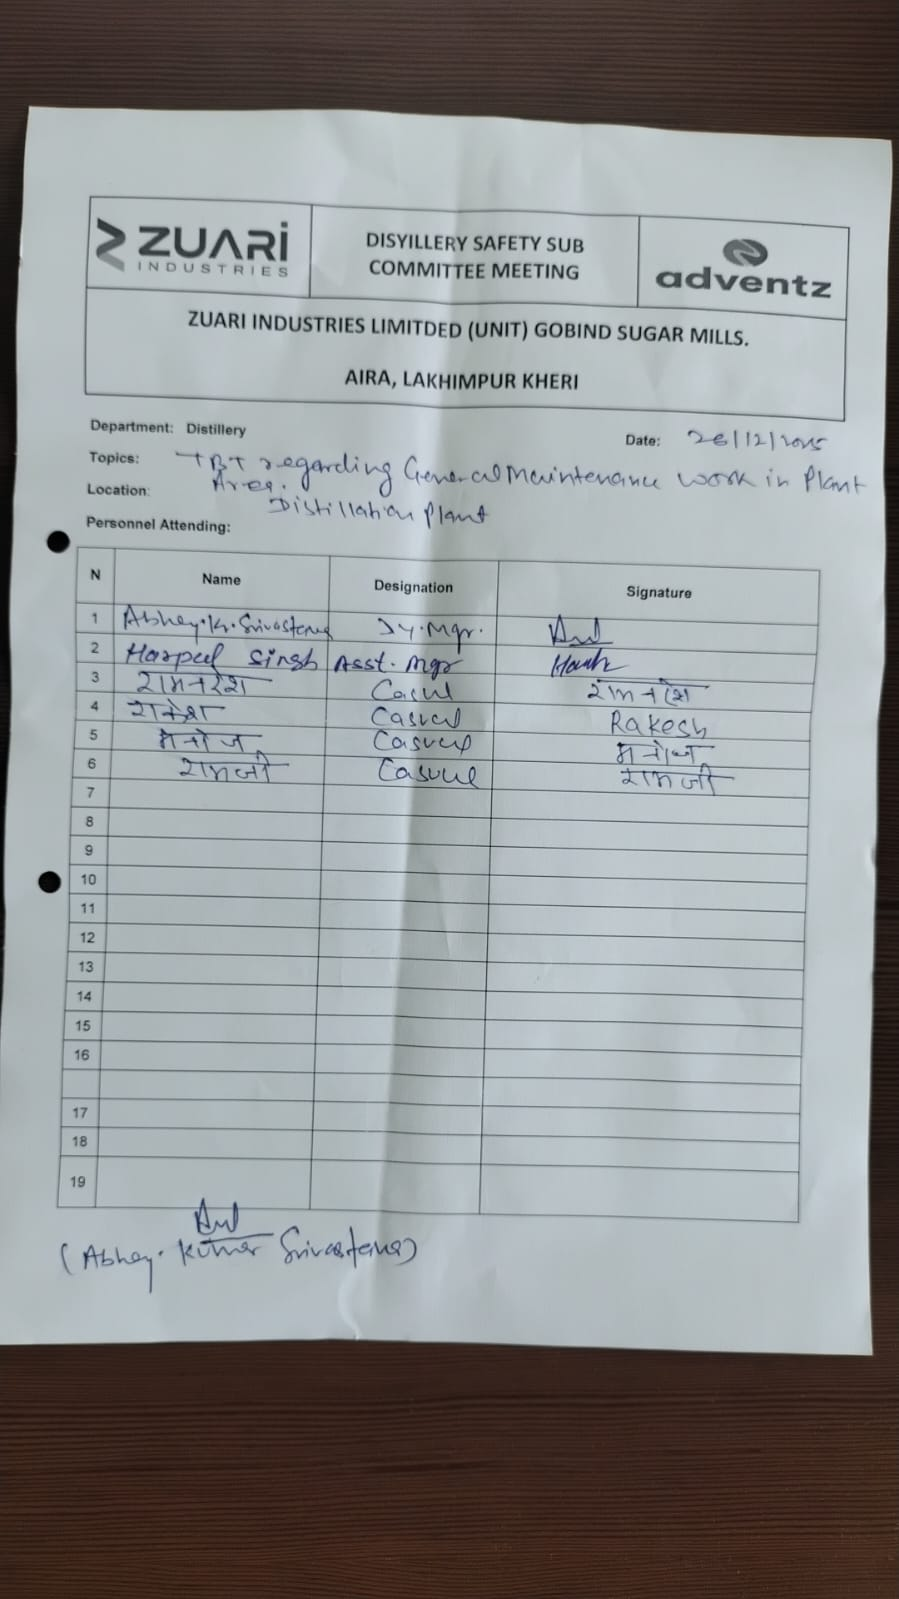 ZUARI
INDUSTRIES
DISYILLERY SAFETY SUB
COMMITTEE MEETING
adventz
ZUARI INDUSTRIES LIMITDED (UNIT) GOBIND SUGAR MILLS.
AIRA, LAKHIMPUR KHERI
Department: Distillery
Date: 26/12/2025
Topics: TBT regarding General Maintenance work in Plant
Area.
Location: Distillation Plant
Personnel Attending:
N Name Designation Signature
1 Abhay.K.Srivastava Dy.Mgr.
2 Harpal Singh Asst. Mgr
3 रामनरेश Casul रामनरेश
4 राकेश Casuel Rakesh
5 मनोज Casuel मनोज
6 रामजी Casuel रामजी
7
8
9
10
11
12
13
14
15
16
17
18
19
(Abhay. Kumar Srivastava)